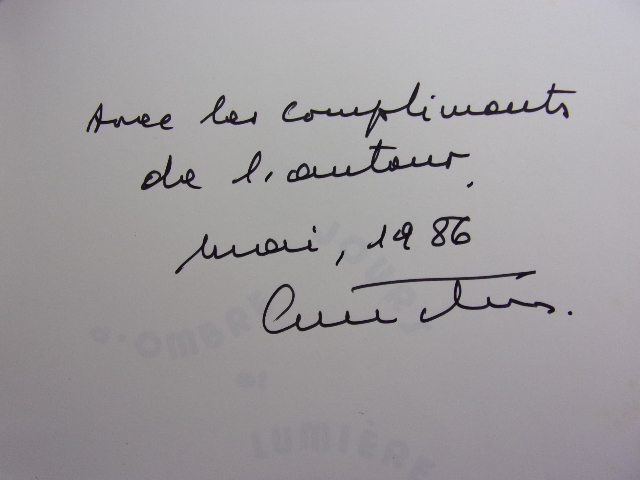 Avec les compliments
de l'auteur.
Mai, 1986
JOURS
D'OMBRE
DE
LUMIÈRE